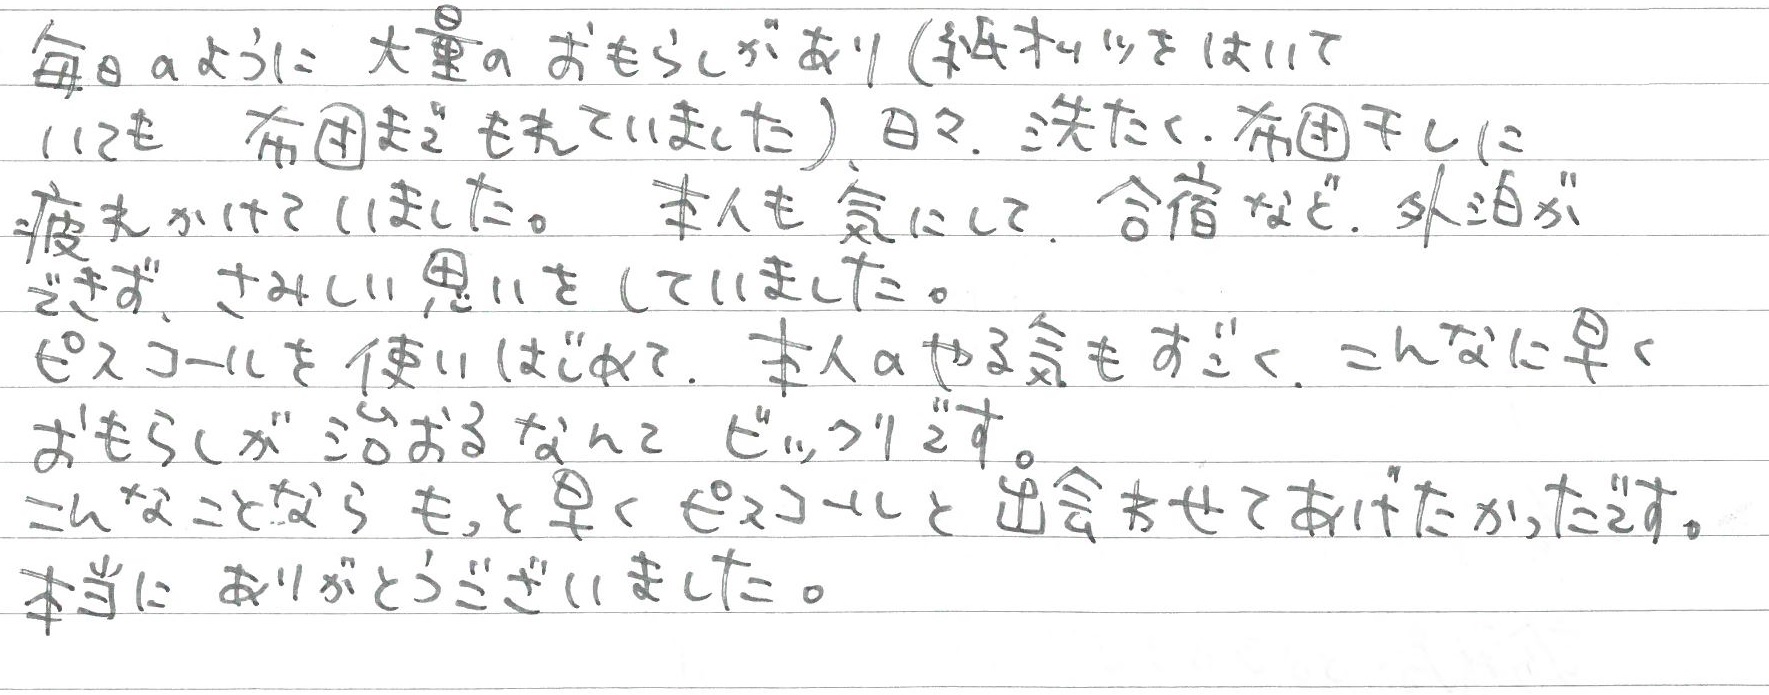 毎日のように 大量の おもらしがあり(紙オムツをはいて
いても 布団まで もれていました)、日々、洗たく、布団干しに
疲れかけていました。 本人も 気にして、合宿など、外泊が
できず、さみしい思いを していました。
ピスコールを 使いはじめて、本人の やる気も すごく、こんなに早く
おもらしが 治おる なんて ビックリです。
こんなことなら もっと早く ピスコールと 出会わせてあげたかったです。
本当に ありがとうございました。